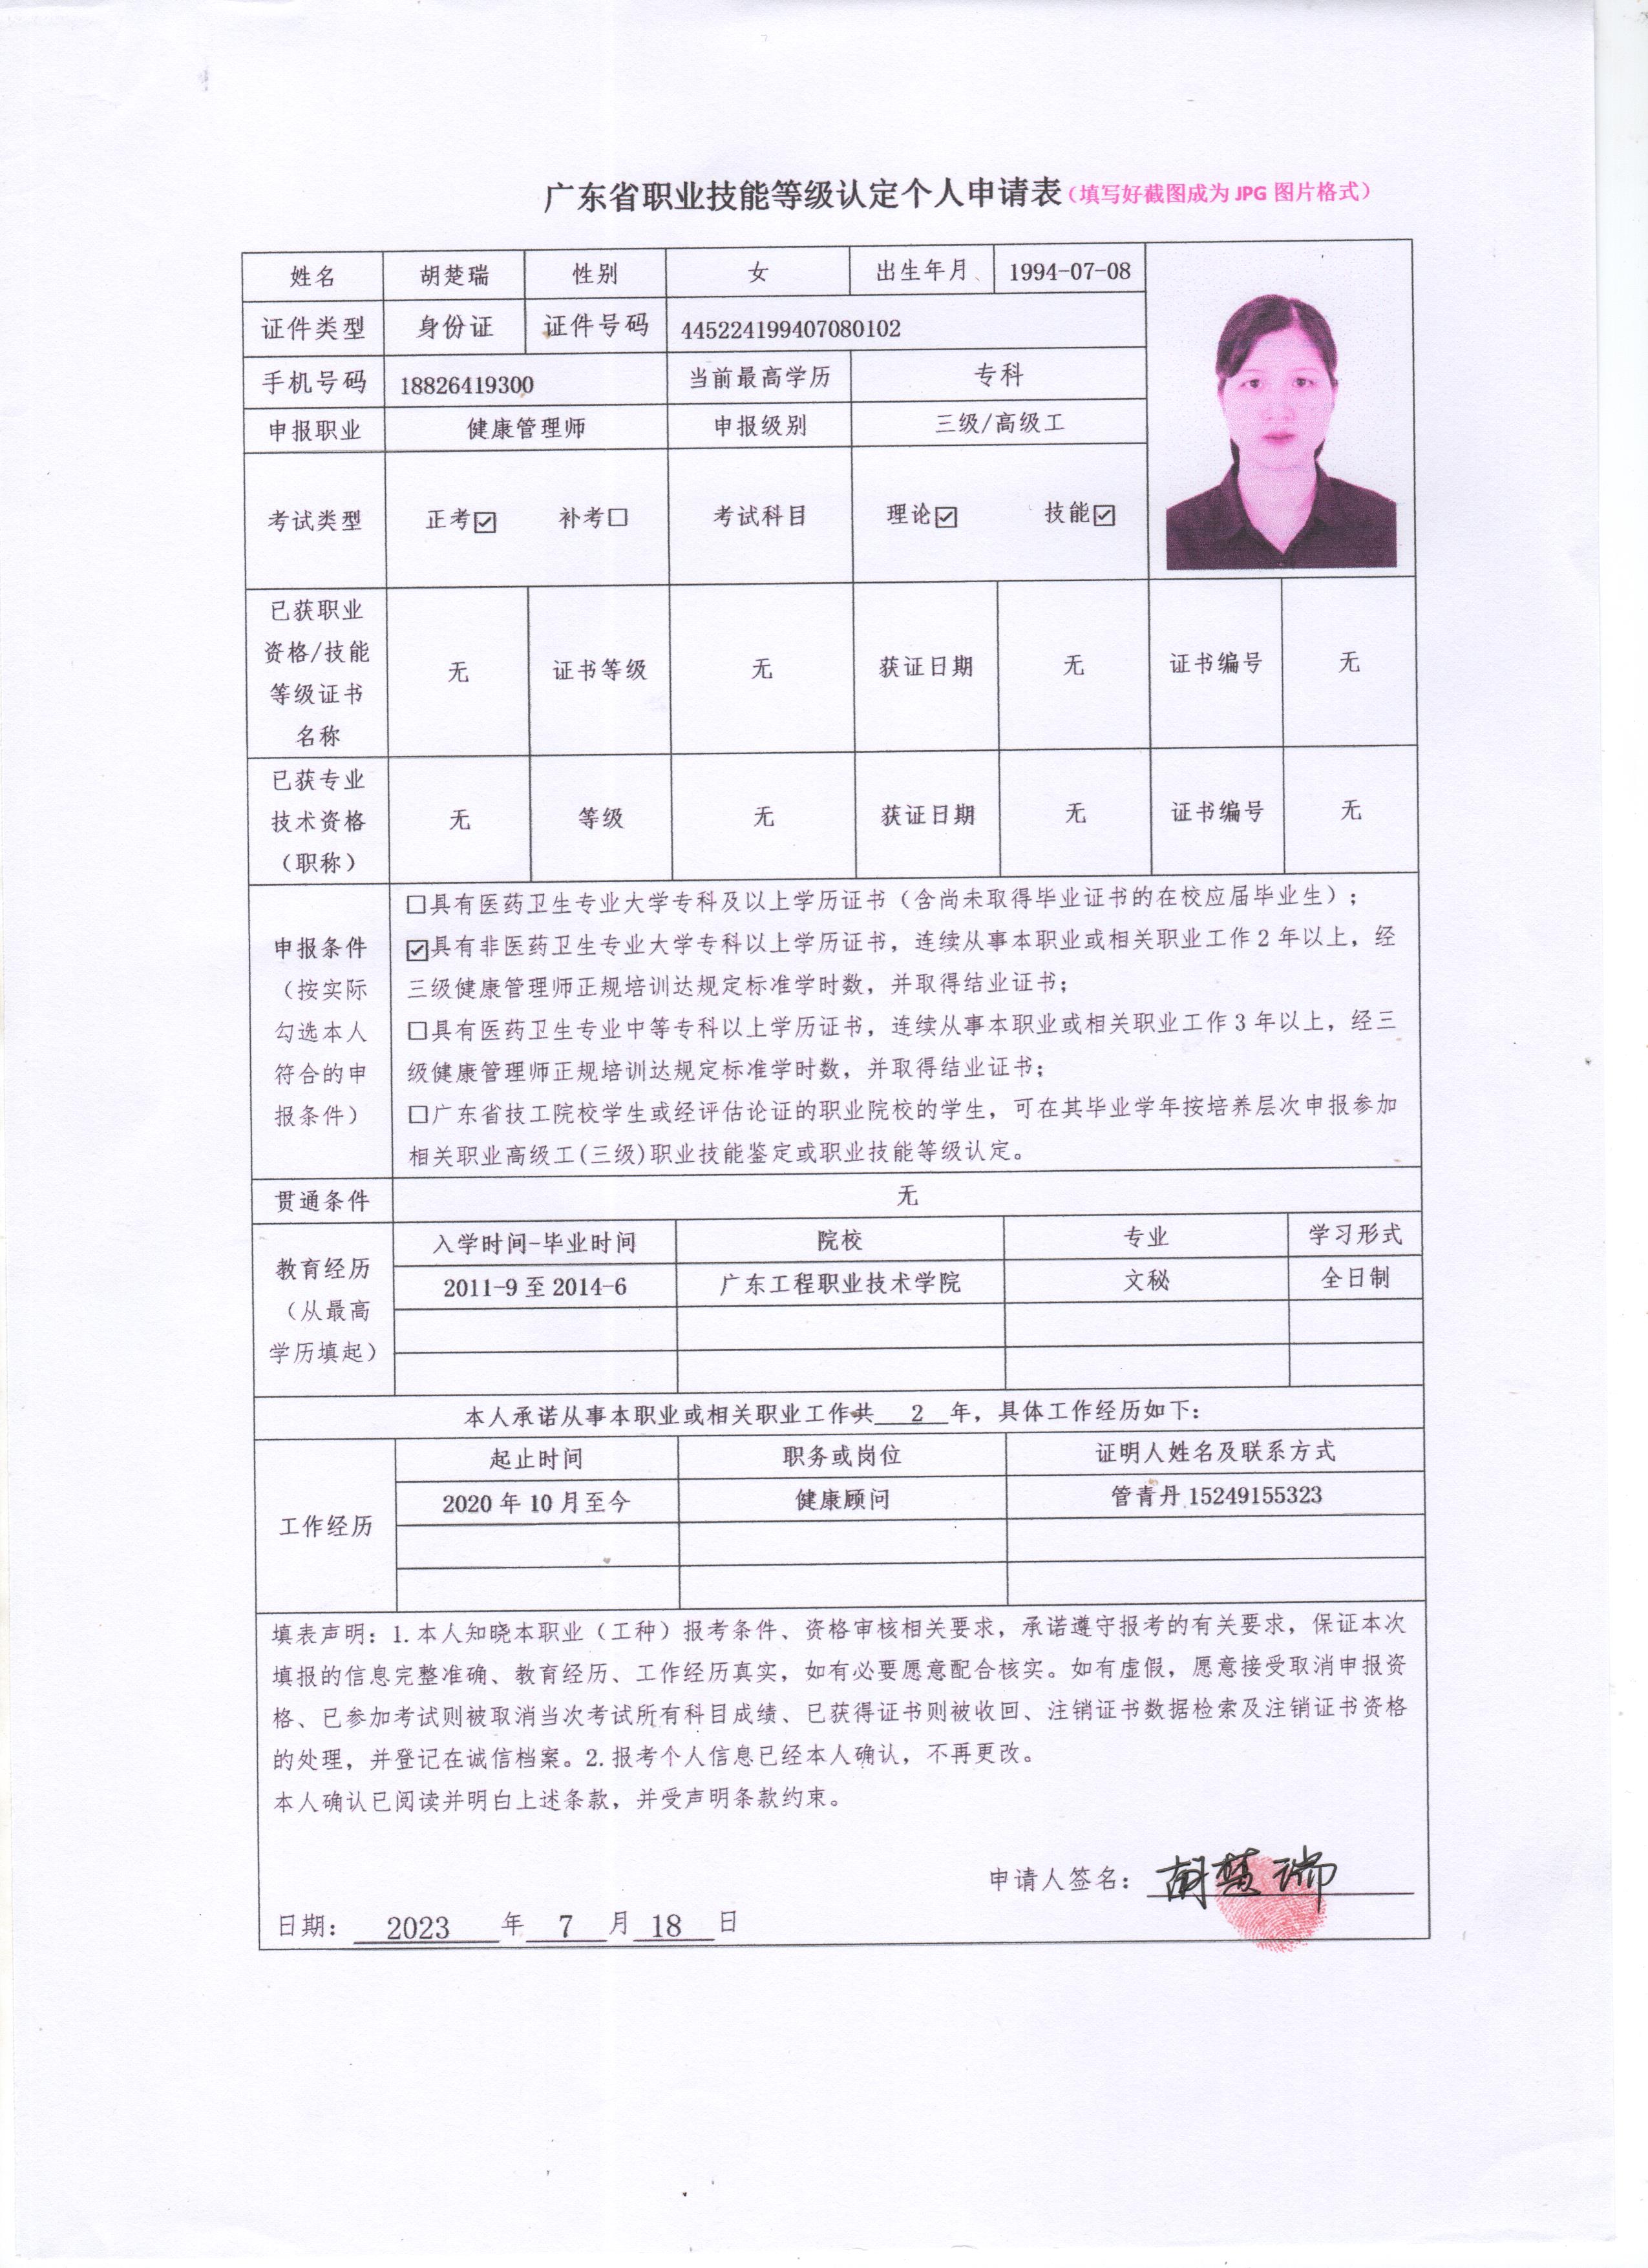 广东省职业技能等级认定个人申请表（填写好截图成为 JPG 图片格式）
姓名 胡楚瑞 性别 女 出生年月 1994-07-08
证件类型 身份证 证件号码 445224199407080102
手机号码 18826419300 当前最高学历 专科
申报职业 健康管理师 申报级别 三级/高级工
考试类型 正考☑ 补考☐ 考试科目 理论☑ 技能☑
已获职业
资格/技能
等级证书
名称
无 证书等级 无 获证日期 无 证书编号 无
已获专业
技术资格
（职称）
无 等级 无 获证日期 无 证书编号 无
申报条件
（按实际
勾选本人
符合的申
报条件）
☐具有医药卫生专业大学专科及以上学历证书（含尚未取得毕业证书的在校应届毕业生）；
☑具有非医药卫生专业大学专科以上学历证书，连续从事本职业或相关职业工作2年以上，经
三级健康管理师正规培训达规定标准学时数，并取得结业证书；
☐具有医药卫生专业中等专科以上学历证书，连续从事本职业或相关职业工作3年以上，经三
级健康管理师正规培训达规定标准学时数，并取得结业证书；
☐广东省技工院校学生或经评估论证的职业院校的学生，可在其毕业学年按培养层次申报参加
相关职业高级工(三级)职业技能鉴定或职业技能等级认定。
贯通条件 无
教育经历
（从最高
学历填起）
入学时间-毕业时间 院校 专业 学习形式
2011-9 至 2014-6 广东工程职业技术学院 文秘 全日制
本人承诺从事本职业或相关职业工作共 2 年，具体工作经历如下：
工作经历
起止时间 职务或岗位 证明人姓名及联系方式
2020 年 10 月至今 健康顾问 管青丹 15249155323
填表声明：1.本人知晓本职业（工种）报考条件、资格审核相关要求，承诺遵守报考的有关要求，保证本次
填报的信息完整准确、教育经历、工作经历真实，如有必要愿意配合核实。如有虚假，愿意接受取消申报资
格、已参加考试则被取消当次考试所有科目成绩、已获得证书则被收回、注销证书数据检索及注销证书资格
的处理，并登记在诚信档案。2.报考个人信息已经本人确认，不再更改。
本人确认已阅读并明白上述条款，并受声明条款约束。
申请人签名：胡楚瑞
日期： 2023 年 7 月 18 日